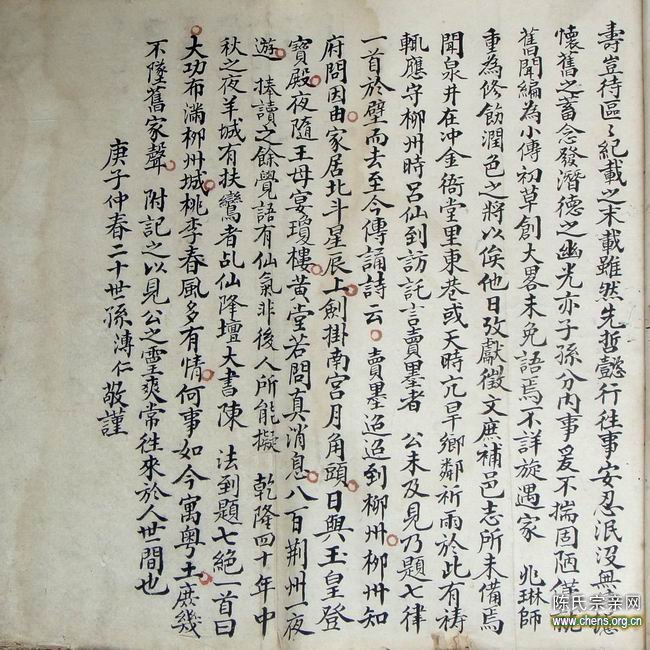 壽豈待區〻紀載之末載雖然先哲懿行往事安忍泯沒無
懷舊之蓄念發潛德之幽光亦子孫分內事爰不揣固陋僅
舊聞編為小傳初草創大畧未免語焉不詳旋遇家 兆琳師
重為修飭潤色之將以俟他日攷獻徵文庶補邑志所未備焉
聞泉井在冲金衙堂里東巷或天時亢旱鄉鄰祈雨於此有禱
輒應守柳州時呂仙到訪託言賣墨者 公未及見乃題七律
一首於壁而去至今傳誦詩云 賣墨迢迢到柳州柳州知
府問因由家居北斗星辰上劍掛南宮月角頭日與玉皇登
寶殿夜隨王母宴瓊樓黃堂若問真消息八百荆州一夜
遊 捧讀之餘覺語有仙氣非後人所能擬 乾隆四十年中
秋之夜羊城有扶鸞者乩仙降壇大書陳 法到題七絕一首曰
大功布滿柳州城桃李春風多有情何事如今寓粵土庶幾
不墜舊家聲 附記之以見公之靈爽常往來於人世間也
庚子仲春二十世孫溥仁敬謹
陈氏宗亲网
www.chens.org.cn